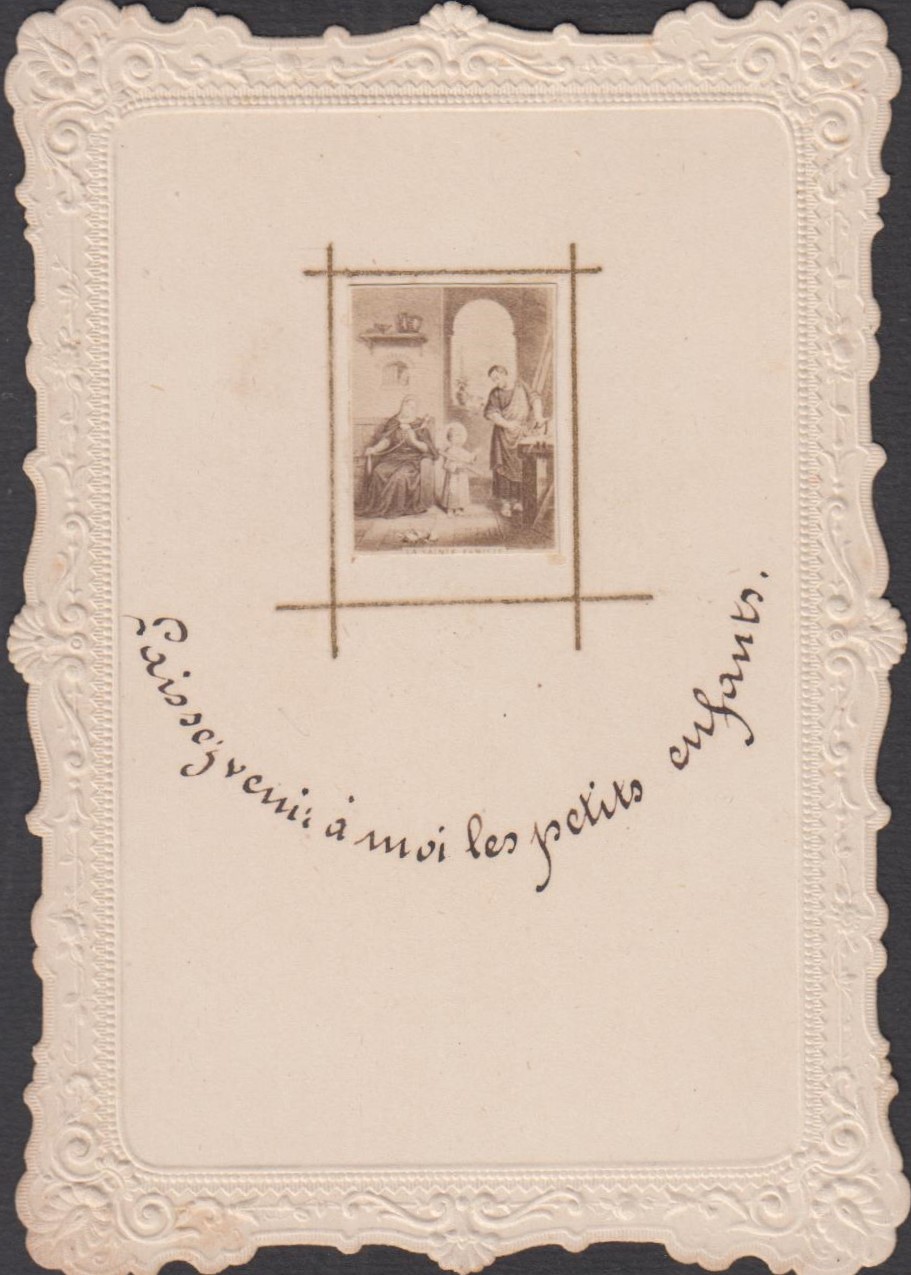 LA SAINTE FAMILLE
Laissez venir à moi les petits enfants.